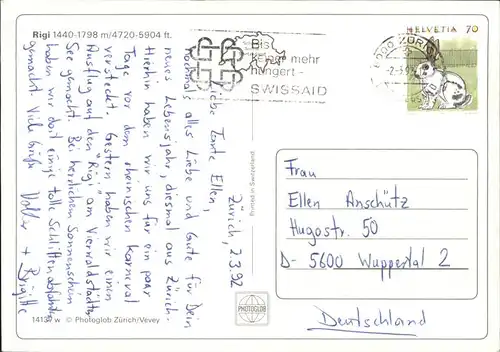 Rigi 1440-1798 m/4720-5904 ft.
Bis
keiner mehr
hungert -
SWISSAID
HELVETIA 70
8000 ZÜRICH
-2-3.9
Zürich, 2.3.92
Liebe Tante Ellen,
nochmals alles Liebe und Gute für Dein
neues Lebensjahr, diesmal aus Zürich.
Hierhin haben wir uns für ein paar
Tage vor dem rheinischen Karneval
versteckt. Gestern haben wir einen
Ausflug auf den "Rigi" am Vierwaldstätter
See gemacht. Bei herrlichem Sonnenschein
haben wir dort einige toll Schlittenabfahrten
gemacht. Viele Grüße Volker + Brigitte
Frau
Ellen Anschütz
Hugostr. 50
D-5600 Wuppertal 2
Deutschland
Printed in Switzerland
PHOTOGLOB
14137 w © Photoglob Zürich/Vevey